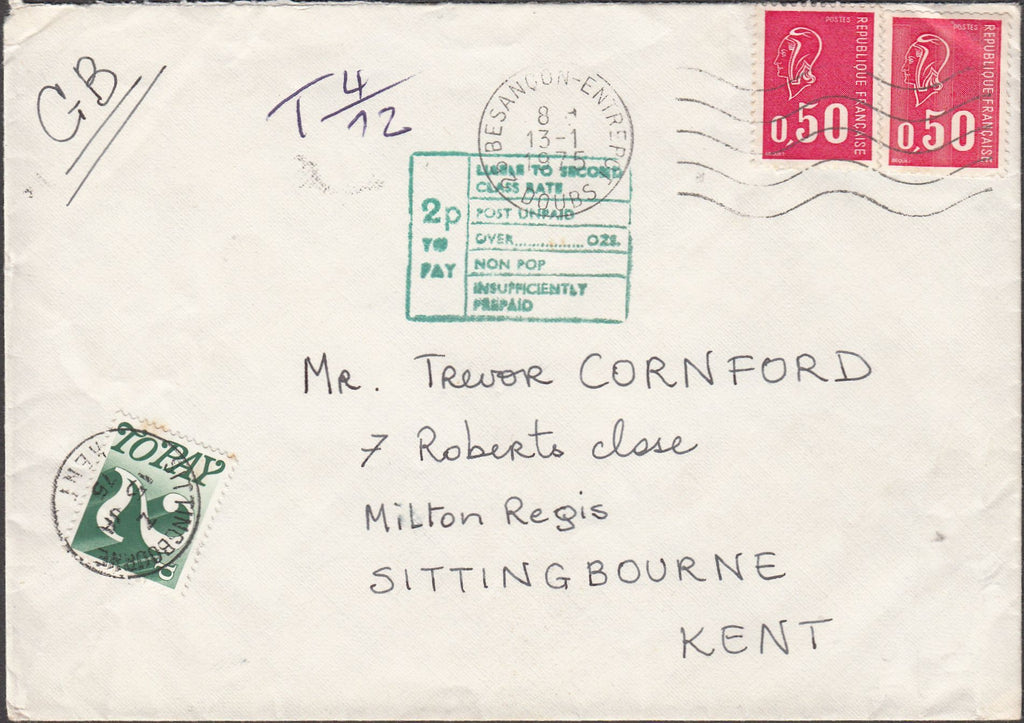 GB
T 4/12
BESANÇON-ENTREPOT
8 H
13-1
1975
DOUBS
POSTES
REPUBLIQUE FRANÇAISE
0,50
BEQUET
POSTES
REPUBLIQUE FRANÇAISE
0,50
BEQUET
2p
TO
PAY
LIABLE TO SECOND
CLASS RATE
POST UNPAID
OVER...............OZS.
NON POP
INSUFFICIENTLY
PREPAID
Mr. Trevor CORNFORD
7 Roberts close
Milton Regis
SITTINGBOURNE
KENT
TO PAY
2
P
SITTINGBOURNE
KENT
JA
75